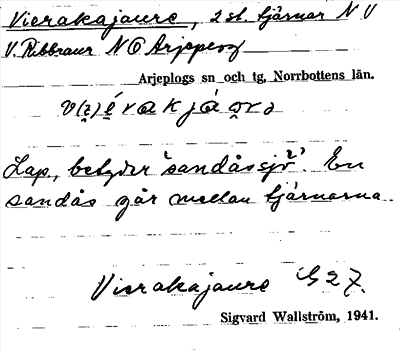 Vierakajaure, 2 st. tjärnar N V
V. Ribbraur N O Arjeplog
Arjeplogs sn och tg, Norrbottens län.
Lap., betyder "sandåssjö". En
sandås går mellan tjärnarna.
Vierakajaure G 2 7.
Sigvard Wallström, 1941.